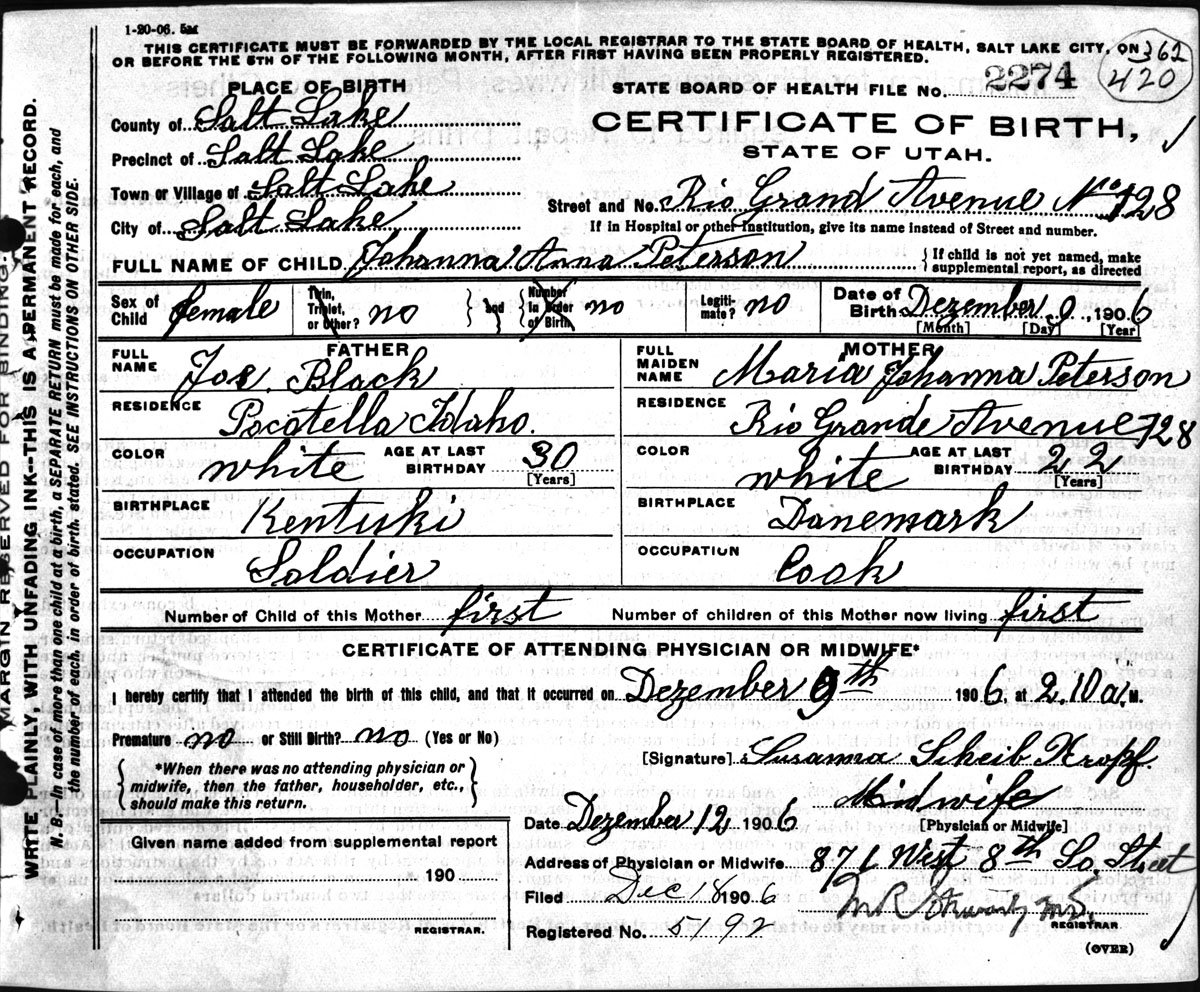 1-20-06. 5M
THIS CERTIFICATE MUST BE FORWARDED BY THE LOCAL REGISTRAR TO THE STATE BOARD OF HEALTH, SALT LAKE CITY, ON
OR BEFORE THE 5TH OF THE FOLLOWING MONTH, AFTER FIRST HAVING BEEN PROPERLY REGISTERED.
362
420
STATE BOARD OF HEALTH FILE No. 2274
PLACE OF BIRTH
County of Salt Lake
Precinct of Salt Lake
Town or Village of Salt Lake
City of Salt Lake
CERTIFICATE OF BIRTH,
STATE OF UTAH.
Street and No. Rio Grand Avenue No. 728
If in Hospital or other Institution, give its name instead of Street and number.
FULL NAME OF CHILD Johanna Anna Peterson
{ If child is not yet named, make
supplemental report, as directed
Sex of Child female
Twin, Triplet, or Other? no
} and {
Number in Order of Birth no
Legiti- mate? no
Date of Birth Dezember 9, 1906
[Month] [Day] [Year]
FATHER
FULL NAME Joe. Black
RESIDENCE Pocatella Idaho.
COLOR white AGE AT LAST BIRTHDAY 30
[Years]
BIRTHPLACE Kentuski
OCCUPATION Soldier
MOTHER
FULL MAIDEN NAME Maria Johanna Peterson
RESIDENCE Rio Grande Avenue 728
COLOR white AGE AT LAST BIRTHDAY 22
[Years]
BIRTHPLACE Danemark
OCCUPATION Cook
Number of Child of this Mother first Number of children of this Mother now living first
CERTIFICATE OF ATTENDING PHYSICIAN OR MIDWIFE*
I hereby certify that I attended the birth of this child, and that it occurred on Dezember 9th 1906, at 2.10 a. M.
Premature no or Still Birth? no (Yes or No)
{ *When there was no attending physician or
midwife, then the father, householder, etc.,
should make this return. }
[Signature] Susanna Scheib Kropf.
Midwife
[Physician or Midwife]
Date Dezember 12 1906
Address of Physician or Midwife 871 West 8th So. Street
Filed Dec 18 1906
Registered No. 5192
REGISTRAR
(OVER)
Given name added from supplemental report
190
REGISTRAR.
MARGIN RESERVED FOR BINDING.
WRITE PLAINLY, WITH UNFADING INK--THIS IS A PERMANENT RECORD.
N. B.—In case of more than one child at a birth, a SEPARATE RETURN must be made for each, and
the number of each, in order of birth, stated. SEE INSTRUCTIONS ON OTHER SIDE.